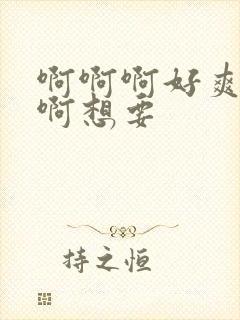 啊啊啊好爽
啊想要
持之恒